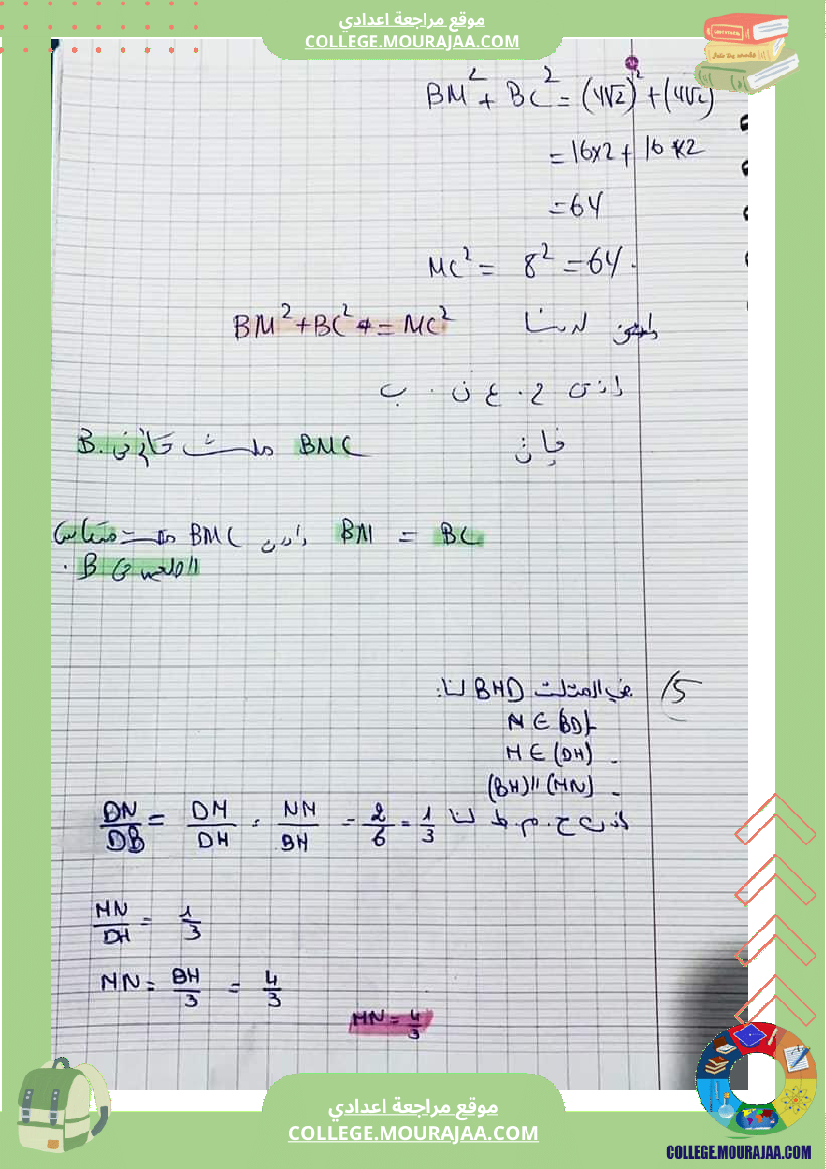 موقع مراجعة اعدادي
COLLEGE.MOURAJAA.COM
BM² + BC² = (4√2)² + (4√2)
= 16×2 + 16×2
= 64
MC² = 8² = 64.
لدينا BM² + BC² = MC²
اذن ح. ع. ف. ب
فإن BMC مثلث قائم في B.
BM = BC واذن BMC مثلث متساوي
الضلعين في B.
5/ في المثلث BHD لنا:
N ∈ (BD)
M ∈ (DH) -
(BH)//(MN) -
اذن ح. م. ط لنا DN/DB = DM/DH = NM/BH = 2/6 = 1/3
MN/DH = 1/3
MN = BH/3 = 4/3
MN = 4/3
موقع مراجعة اعدادي
COLLEGE.MOURAJAA.COM
COLLEGE.MOURAJAA.COM